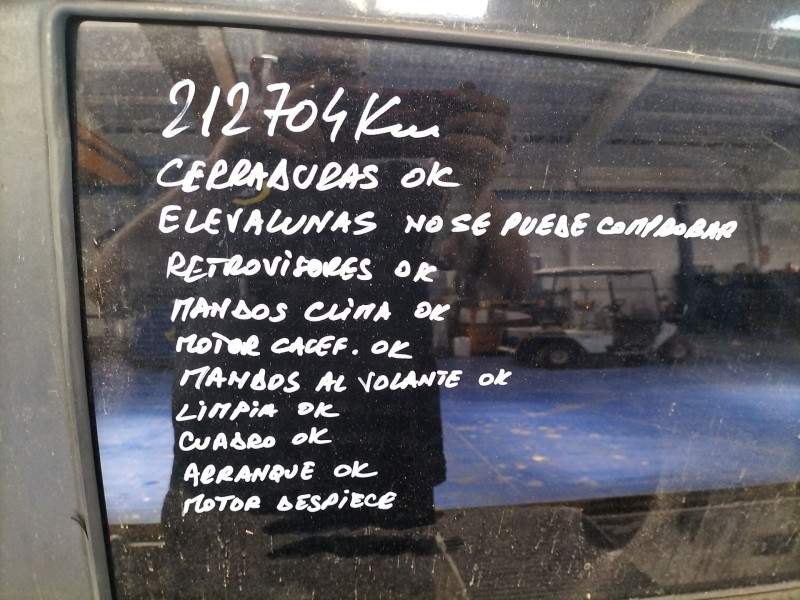 212704 Km
CERRADURAS OK
ELEVALUNAS NO SE PUEDE COMPROBAR
RETROVISORES OK
MANDOS CLIMA OK
MOTOR CALEF. OK
MANDOS AL VOLANTE OK
LIMPIA OK
CUADRO OK
ARRANQUE OK
MOTOR DESPIECE